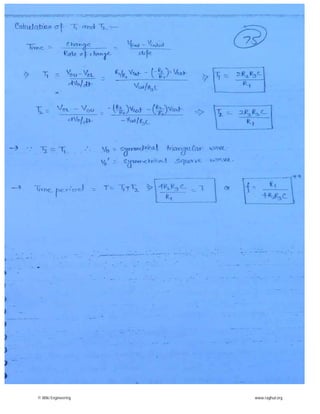 Calculation of T1 and T2 :—
75
Time = change / Rate of change = Vfinal – Vinitial / dV/dt
⇒ T1 = VOU – VOL / dVo/dt = R2/R1 Vsat – (–R2/R1) Vsat / Vsat/R3C ⇒ T1 = 2R2R3C / R1
T2 = VOL – VOU / dVo/dt = –(R2/R1) Vsat – (R2/R1) Vsat / –Vsat/R3C ⇒ T2 = 2R2R3C / R1
→ ∵ T2 = T1 ∴ Vo = symmetrical triangular wave.
Vo' = symmetrical square wave.
→ Time period = T = T1+T2 ⇒ 4R2R3C / R1 = T or f = R1 / 4R2R3C **
© Wiki Engineering www.raghul.org